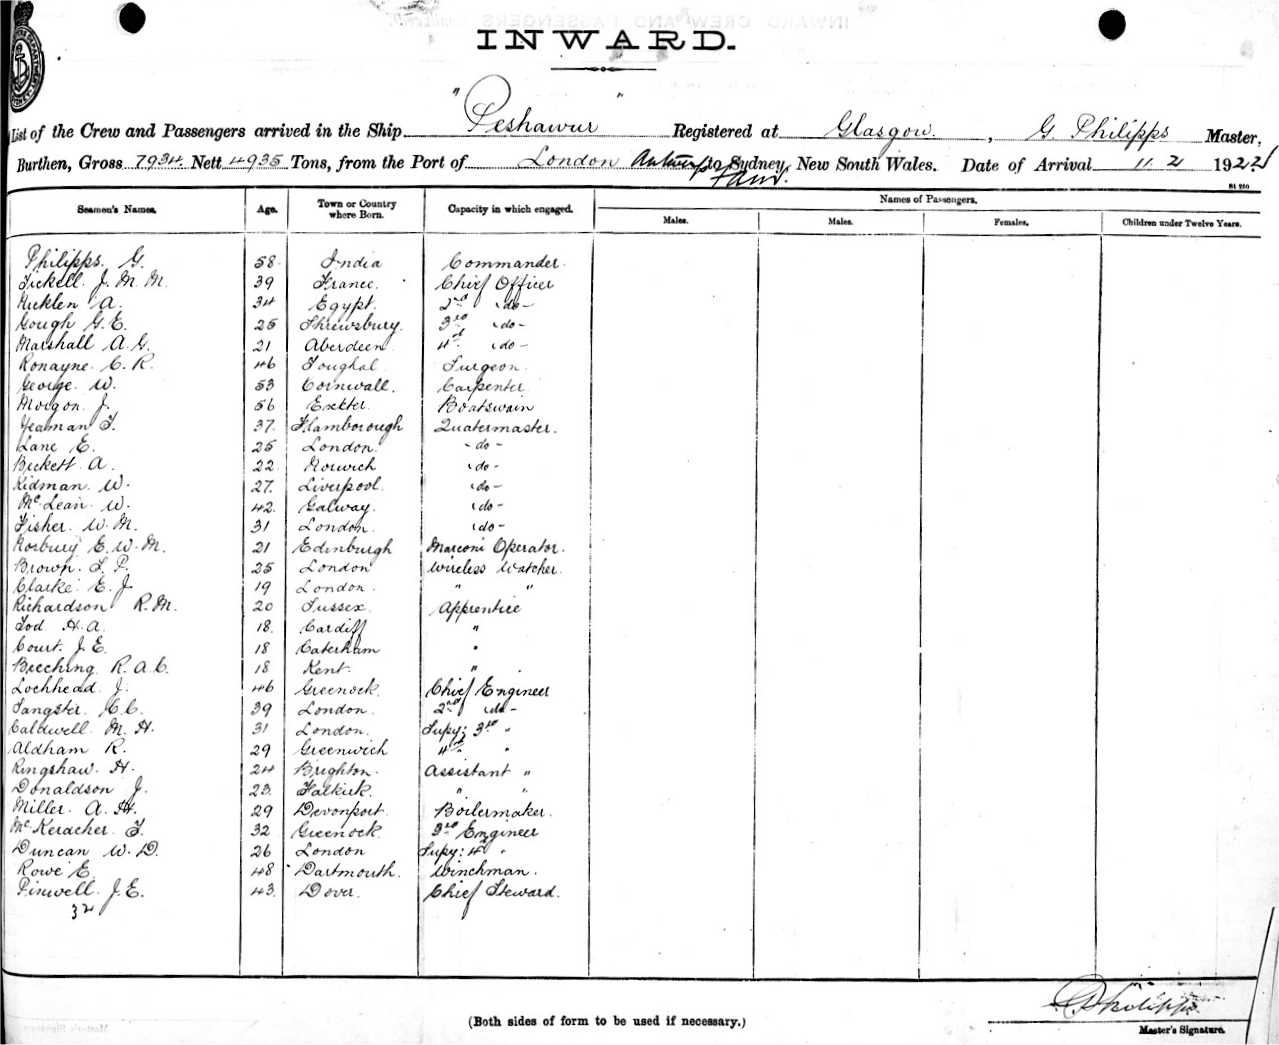 INWARD.
List of the Crew and Passengers arrived in the Ship "Peshawur" Registered at Glasgow, G. Philipps Master,
Burthen, Gross 7934 Nett 4935 Tons, from the Port of London Antwerp to Sydney, New South Wales. Date of Arrival 11.2 1922
81 250
Seamen's Names. Age. Town or Country where Born. Capacity in which engaged. Names of Passengers.
Males. Males. Females. Children under Twelve Years.
Philipps. G. 58 India Commander.
Tickell. J. M. M. 39 France. Chief Officer
Nicklen A. 34 Egypt. 2nd -do-
Gough G. E. 25 Shrewsbury. 3rd -do-
Marshall A. G. 21 Aberdeen 4th -do-
Ronayne. C. R. 46 Youghal Surgeon.
George. W. 53 Cornwall. Carpenter
Morgan. J. 56 Exeter. Boatswain
Yeaman T. 37. Flamborough Quatermaster.
Lane E. 25 London. -do-
Beckett. A. 22 Norwich -do-
Kidman. W. 27. Liverpool. -do-
McLean. W. 42. Galway. -do-
Fisher. W. M. 31 London. -do-
Norbury E. W. M. 21 Edinburgh Marconi Operator.
Brown. F. P. 25 London Wireless Watcher.
Clarke. E. J. 19 London. " "
Richardson R. M. 20 Sussex. Apprentice
Tod. H. A. 18. Cardiff "
Court. J. E. 18 Caterham "
Beeching R. A. C. 18 Kent. "
Lochhead. J. 46 Greenock. Chief Engineer
Sangster. C. C. 39 London. 2nd -do-
Caldwell. M. H. 31 London. Supy; 3rd "
Aldham R. 29 Greenwich 4th "
Kingshaw. H. 24 Brighton. Assistant "
Donaldson J. 23. Falkirk. " "
Miller. A. H. 29 Devonport. Boilermaker.
McKeracher. T. 32 Greenock. 3rd Engineer
Duncan W. D. 26 London Supy: 4th "
Rowe E. 48 Dartmouth. Winchman.
Pinwell. J. E. 43. Dover. Chief Steward.
32
(Both sides of form to be used if necessary.)
G Philipps
Master's Signature.